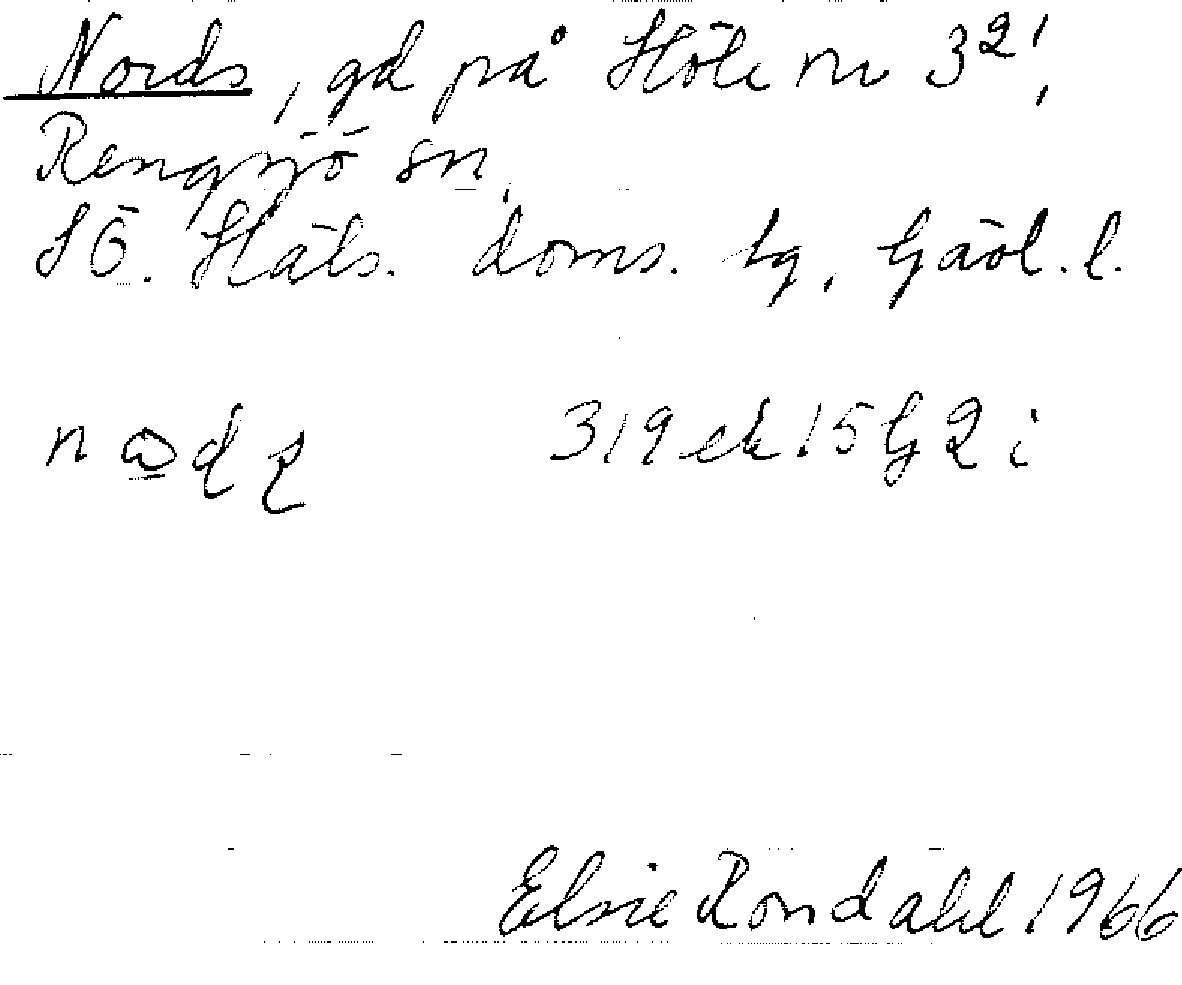 Nords, gd på Höle nr 3²¹,
Rengsjö sn,
SÖ. Häls. doms. tg, Gävl. l.
319 ek 15 G 2 i
Elsie Rondahl 1966